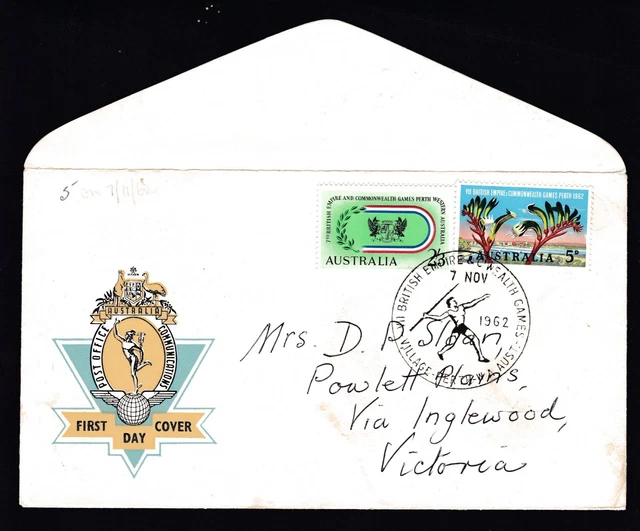 5 on 7/11/62
7TH BRITISH EMPIRE AND COMMONWEALTH GAMES PERTH WESTERN AUSTRALIA
2/3
AUSTRALIA
VII BRITISH EMPIRE & COMMONWEALTH GAMES PERTH 1962
AUSTRALIA 5D
VII BRITISH EMPIRE & C'WEALTH GAMES
7 NOV
1962
VILLAGE PERTH W. AUST.
AUSTRALIA
POST OFFICE COMMUNICATIONS
FIRST DAY COVER
Mrs. D. P. Sloan,
Powlett Plains,
Via Inglewood,
Victoria